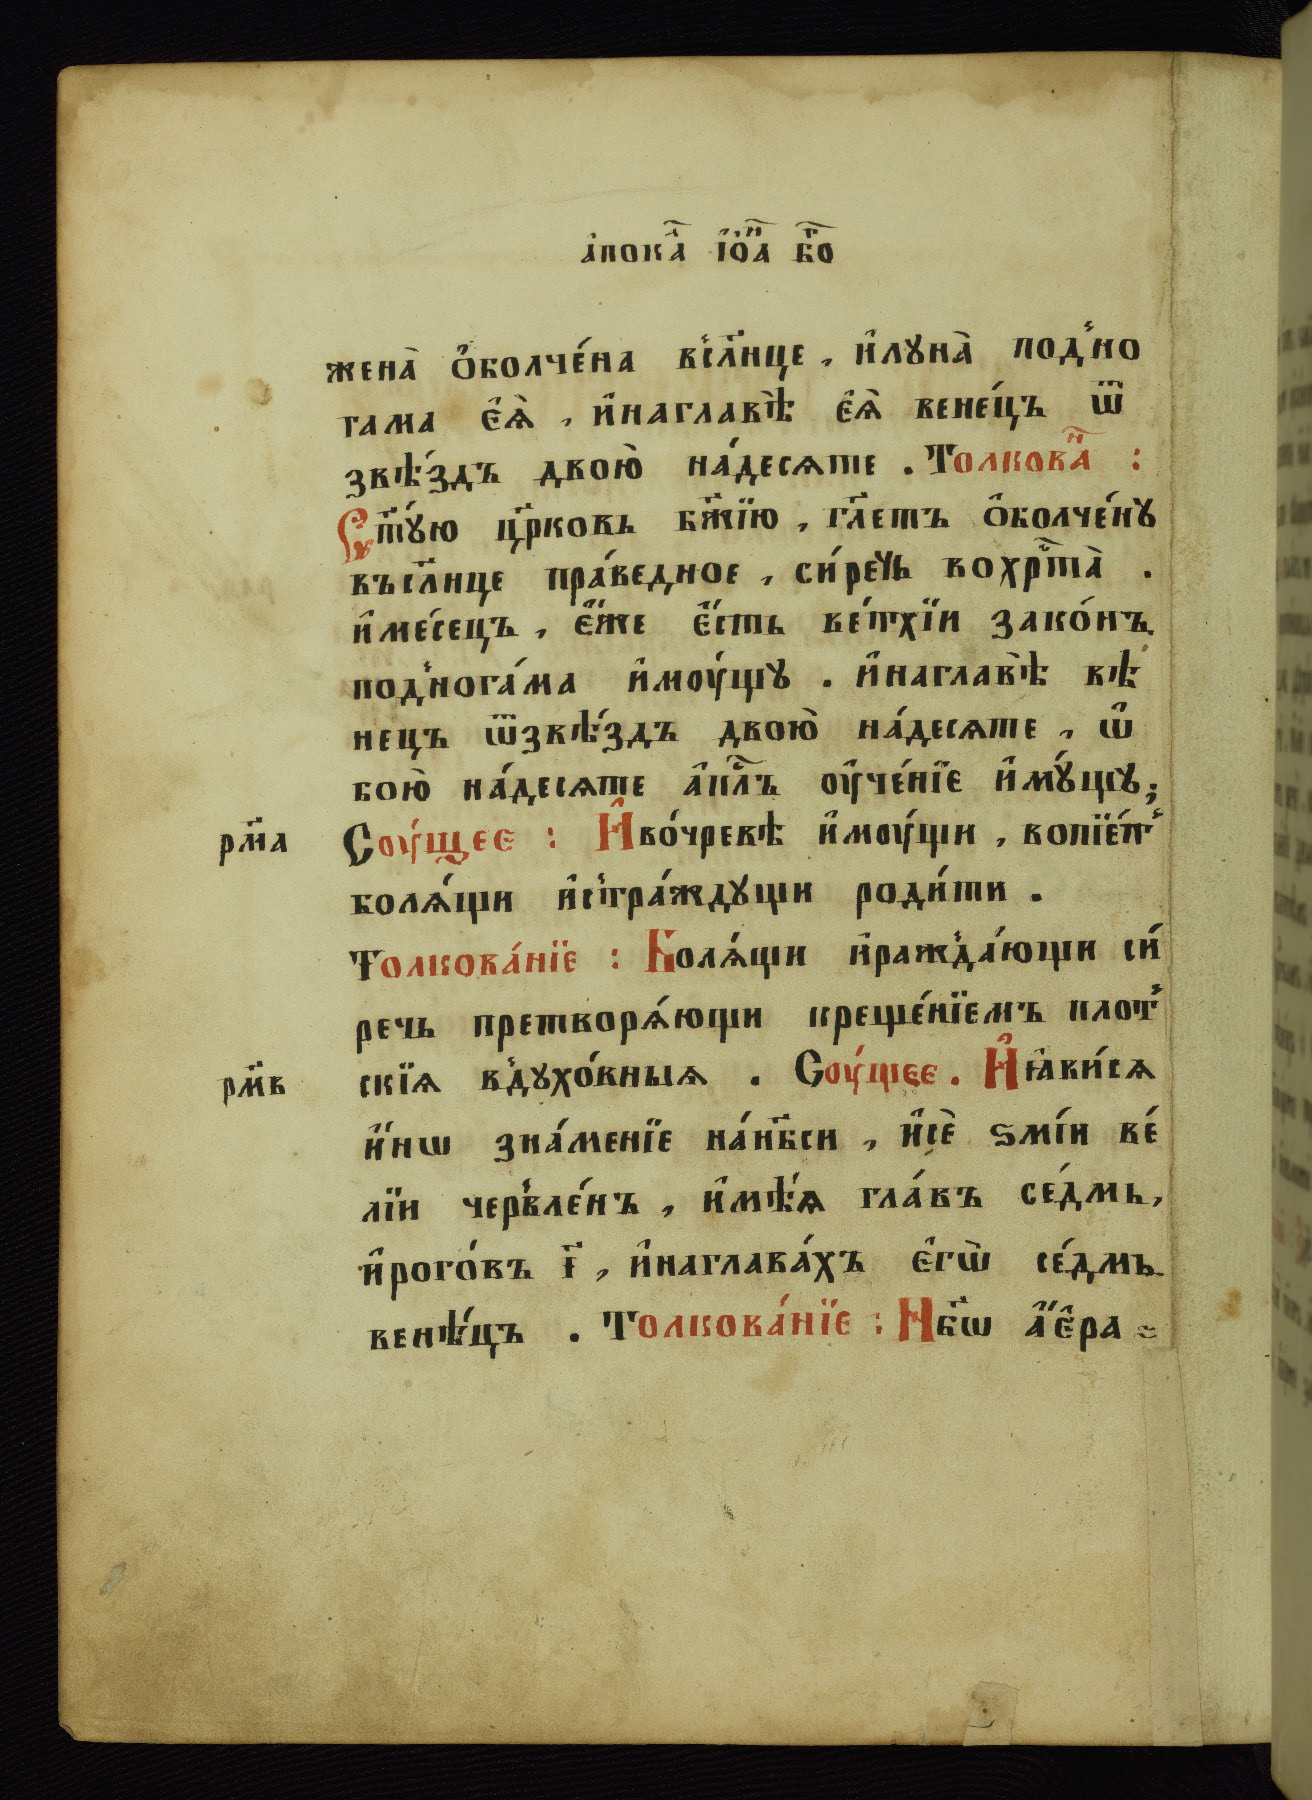 а҆пока́л҇ і҆ѡ҆а́н҇ бг҃о
жена̀ ѻ҆болче́на вʼсл҃нце, и҆лꙋна̀ подʼно
гама є҆ѧ̀, и҆наглавѣ̀ є҆ѧ̀ вене́цъ ѿ
звѣ́здъ двою̀ на́десѧте. Толкова́н҇ :
Ст҃ꙋ́ю цр҃ковь бж҃їю, гл҃етъ ѻ҆болче́нꙋ
въсл҃нце пра́ведное, си́речь вохрⷭ҇та̀ .
и҆ме́сецъ, є҆́же є҆́сть ве́тхїи зако́нъ
подʼнога́ма и҆моу́щꙋ . и҆наглавѣ̀ вѣ
нецъ ѿзвѣ́здъ двою̀ на́десѧте, ѡ҆
бою̀ на́десѧте а҆пⷭ҇лъ оу҆че́нїе и҆мꙋ́щꙋ;
рм҃а Соу́щее : И҆во́чревѣ и҆моу́щи, вопїе́тʼ
болѧ́щи и҆сʼтра́ждꙋщи роди́ти .
Толкова́нїе : Болѧ́щи и҆ражʼда́ющи си́
речь претворѧ́ющи креще́нїемъ плотʼ
рм҃в скїѧ вʼдꙋхо́вныѧ . Соу́щее. И҆ꙗ҆ви́сѧ
и҆́нѡ зна́менїе на́нб҃си, и҆сѐ ѕмі́и ве́
лїи червʼле́нъ, и҆мѣ́ѧ гла́въ се́дмь,
и҆рого́въ і҃, и҆наглава́хъ є҆гѡ̀ се́дмь
венѣ́цъ . Толкова́нїе : Нб҃ѡ а҆є҆ра